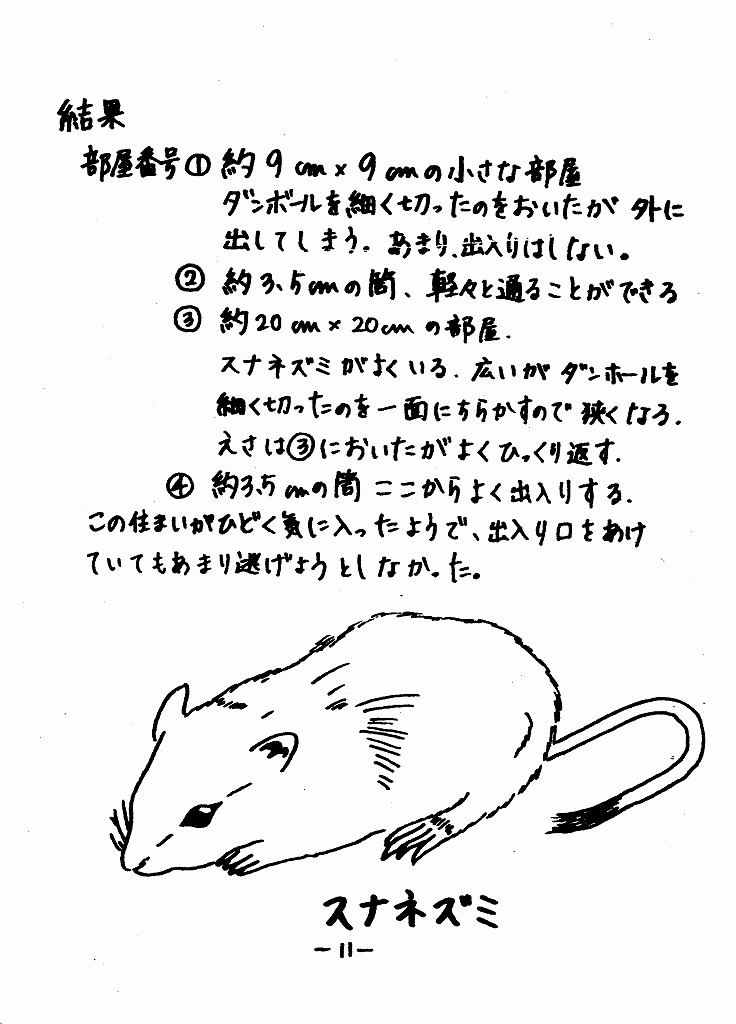 結果
部屋番号① 約9cm×9cmの小さな部屋
ダンボールを細く切ったのをおいたが外に
出してしまう。あまり、出入りはしない。
② 約3.5cmの筒、軽々と通ることができる
③ 約20cm×20cmの部屋.
スナネズミがよくいる.広いがダンボールを
細く切ったのを一面にちらかすので狭くなる.
えさは③においたがよくひっくり返す.
④ 約3.5cmの筒 ここからよく出入りする.
この住まいがひどく気に入ったようで、出入り口をあけ
ていてもあまり逃げようとしなかった。
スナネズミ
-11-